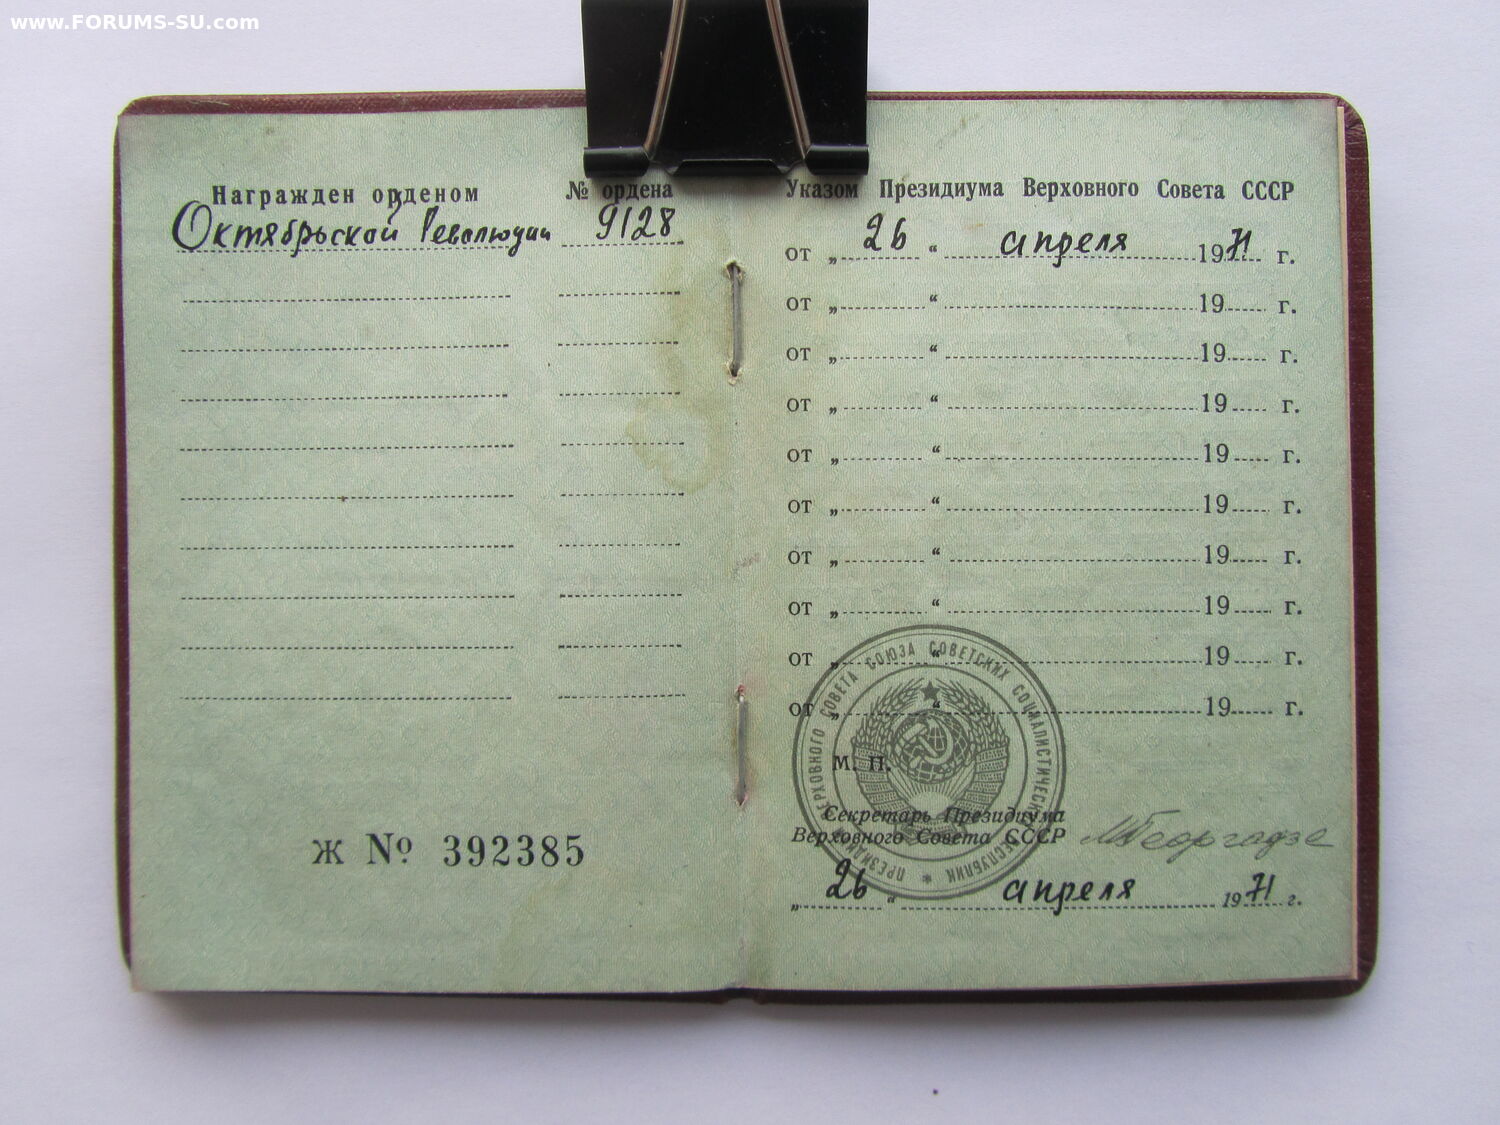 www.FORUMS-SU.com
Награжден орденом № ордена
Октябрьской Революции 9128
Ж № 392385
Указом Президиума Верховного Совета СССР
от „ 26 “ апреля 1971 г.
от „ “ 19 г.
от „ “ 19 г.
от „ “ 19 г.
от „ “ 19 г.
от „ “ 19 г.
от „ “ 19 г.
от „ “ 19 г.
от „ “ 19 г.
от „ “ 19 г.
ПРЕЗИДИУМ ВЕРХОВНОГО СОВЕТА СОЮЗА СОВЕТСКИХ СОЦИАЛИСТИЧЕСКИХ РЕСПУБЛИК
М. П.
Секретарь Президиума
Верховного Совета СССР М Георгадзе
„ 26 “ апреля 1971 г.